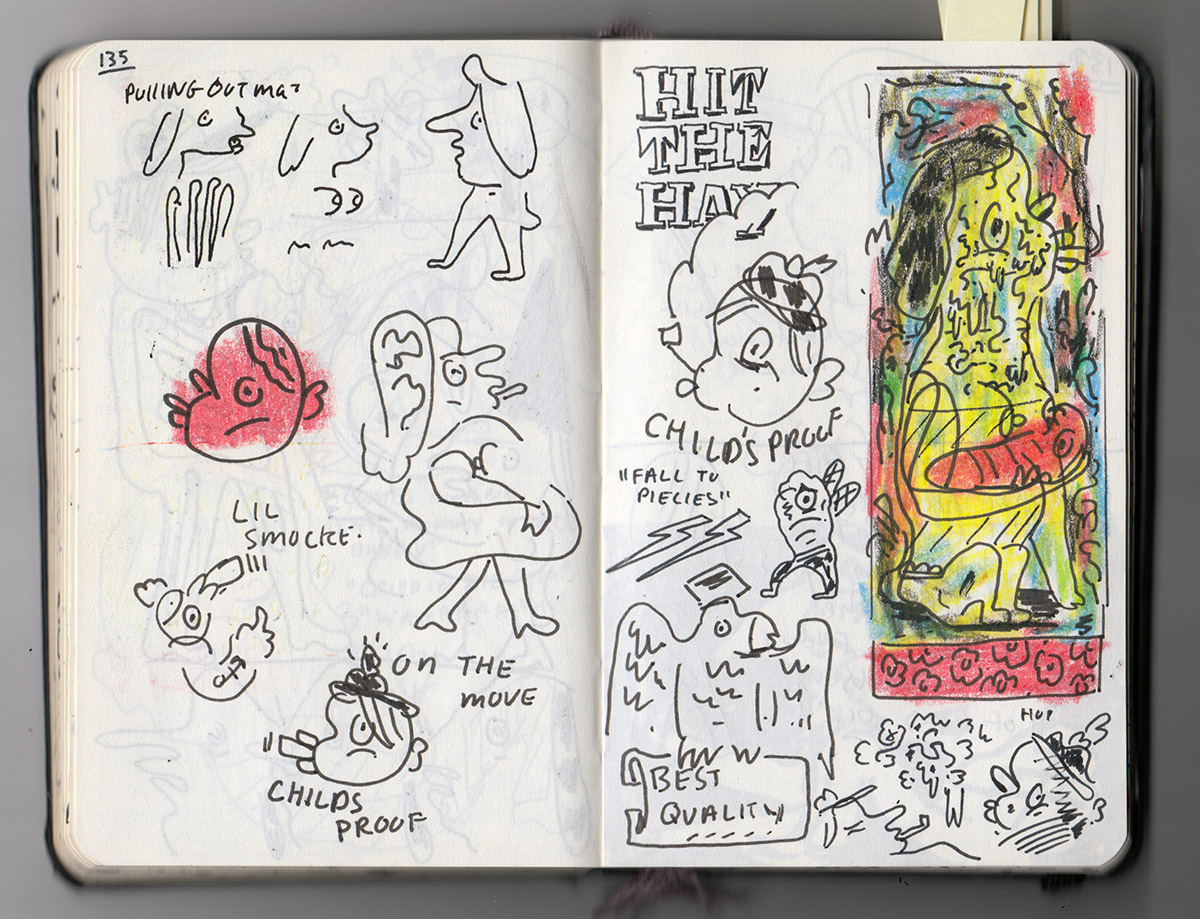 135
PULLING OUT
LIL
SMOCKE.
ON THE
MOVE
CHILDS
PROOF
HIT
THE
HAY
CHILD'S PROOF
"FALL TO
PIECIES"
BEST
QUALITY
HUP